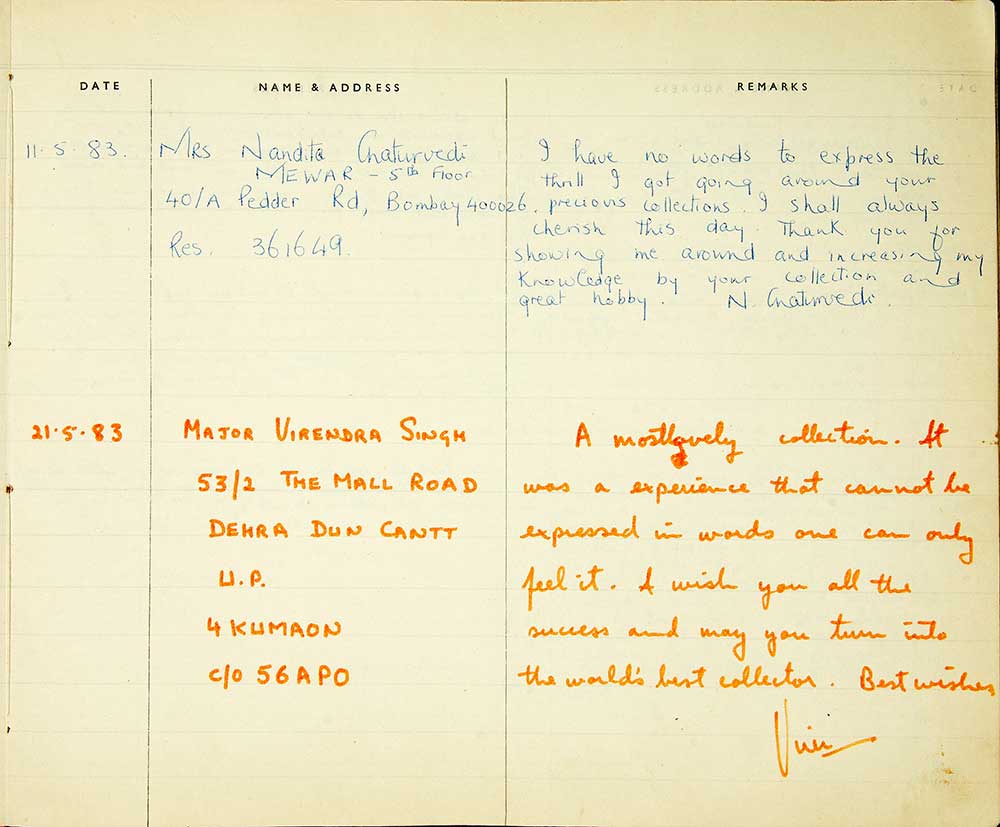 DATE NAME & ADDRESS REMARKS
11.5.83.
Mrs Nandita Chaturvedi
MEWAR - 5th Floor
40/A Pedder Rd, Bombay 400026.
Res. 361649.
I have no words to express the
thrill I got going around your
precious collections. I shall always
cherish this day. Thank you for
showing me around and increasing my
knowledge by your collection and
great hobby. N. Chaturvedi.
21.5.83
MAJOR VIRENDRA SINGH
53/2 THE MALL ROAD
DEHRA DUN CANTT
U.P.
4 KUMAON
c/o 56 APO
A most lovely collection. It
was a experience that cannot be
expressed in words one can only
feel it. I wish you all the
success and may you turn into
the world's best collector. Best wishes